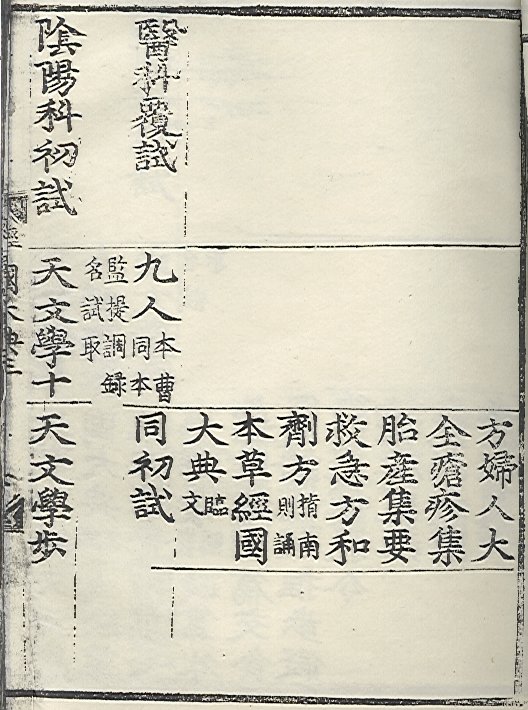 方婦人大
全瘡疹集
胎産集要
救急方和
劑方指南則誦
本草經國
大典臨文
醫科覆試
九人本曹同本
監提調錄名試取
同初試
陰陽科初試
天文學十
天文學步